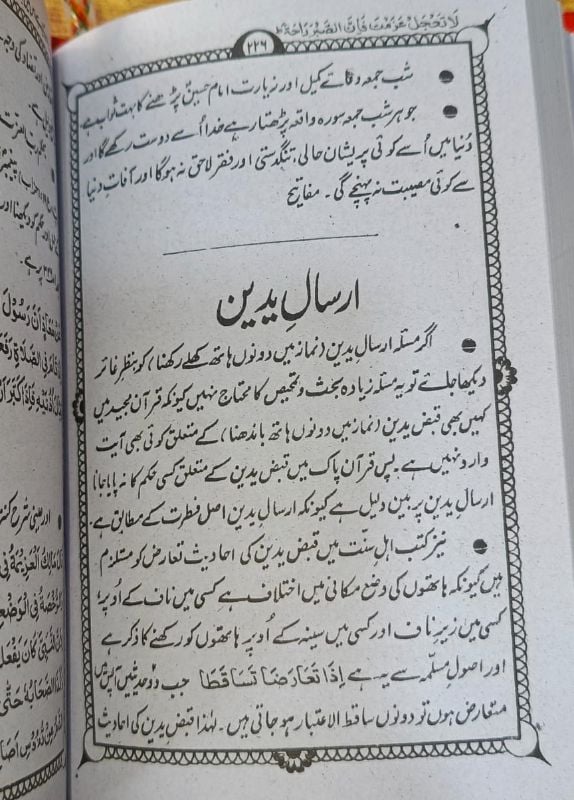 لَا تَعْجَلْ عَزَمْتَ فَاِنَّ الصَّبْرَ رَاحَة
۲۲۶
شب جمعہ دعائے کمیل اور زیارت امام حسینؑ پڑھنے کا بہت ثواب ہے۔
جو ہر شب جمعہ سورہ واقعہ پڑھتا رہے خدا اُسے دوست رکھے گا اور
دُنیا میں اُسے کوئی پریشان حالی، تنگدستی اور فقر لاحق نہ ہوگا اور آفاتِ دنیا
سے کوئی مصیبت نہ پہنچے گی۔ مفاتیح
ارسالِ یدین
اگر مسئلہ ارسالِ یدین (نماز میں دونوں ہاتھ کھلے رکھنا) کو بنظرِ غائر
دیکھا جائے تو یہ مسئلہ زیادہ بحث و تمحیص کا محتاج نہیں کیونکہ قرآن مجید میں
کہیں بھی قبض یدین (نماز میں دونوں ہاتھ باندھنا) کے متعلق کوئی بھی آیت
وارد نہیں ہے۔ پس قرآن پاک میں قبض یدین کے متعلق کسی حکم کا نہ پایا جانا
ارسالِ یدین پر بین دلیل ہے کیونکہ ارسالِ یدین اصل فطرت کے مطابق ہے۔
نیز کتب اہلِ سنت میں قبض یدین کی احادیث تعارض کو مستلزم
ہیں کیونکہ ہاتھوں کی وضع مکانی میں اختلاف ہے کسی میں ناف کے اُوپر
کسی میں زیرِ ناف اور کسی میں سینہ کے اُوپر ہاتھوں کو رکھنے کا ذکر ہے
اور اصول مسلّمہ سے یہ ہے اِذَا تَعَارَضَا تَسَاقَطَا جب دو حدیثیں آپس میں
متعارض ہوں تو دونوں ساقط الاعتبار ہو جاتی ہیں۔ لہٰذا قبض یدین کی احادیث